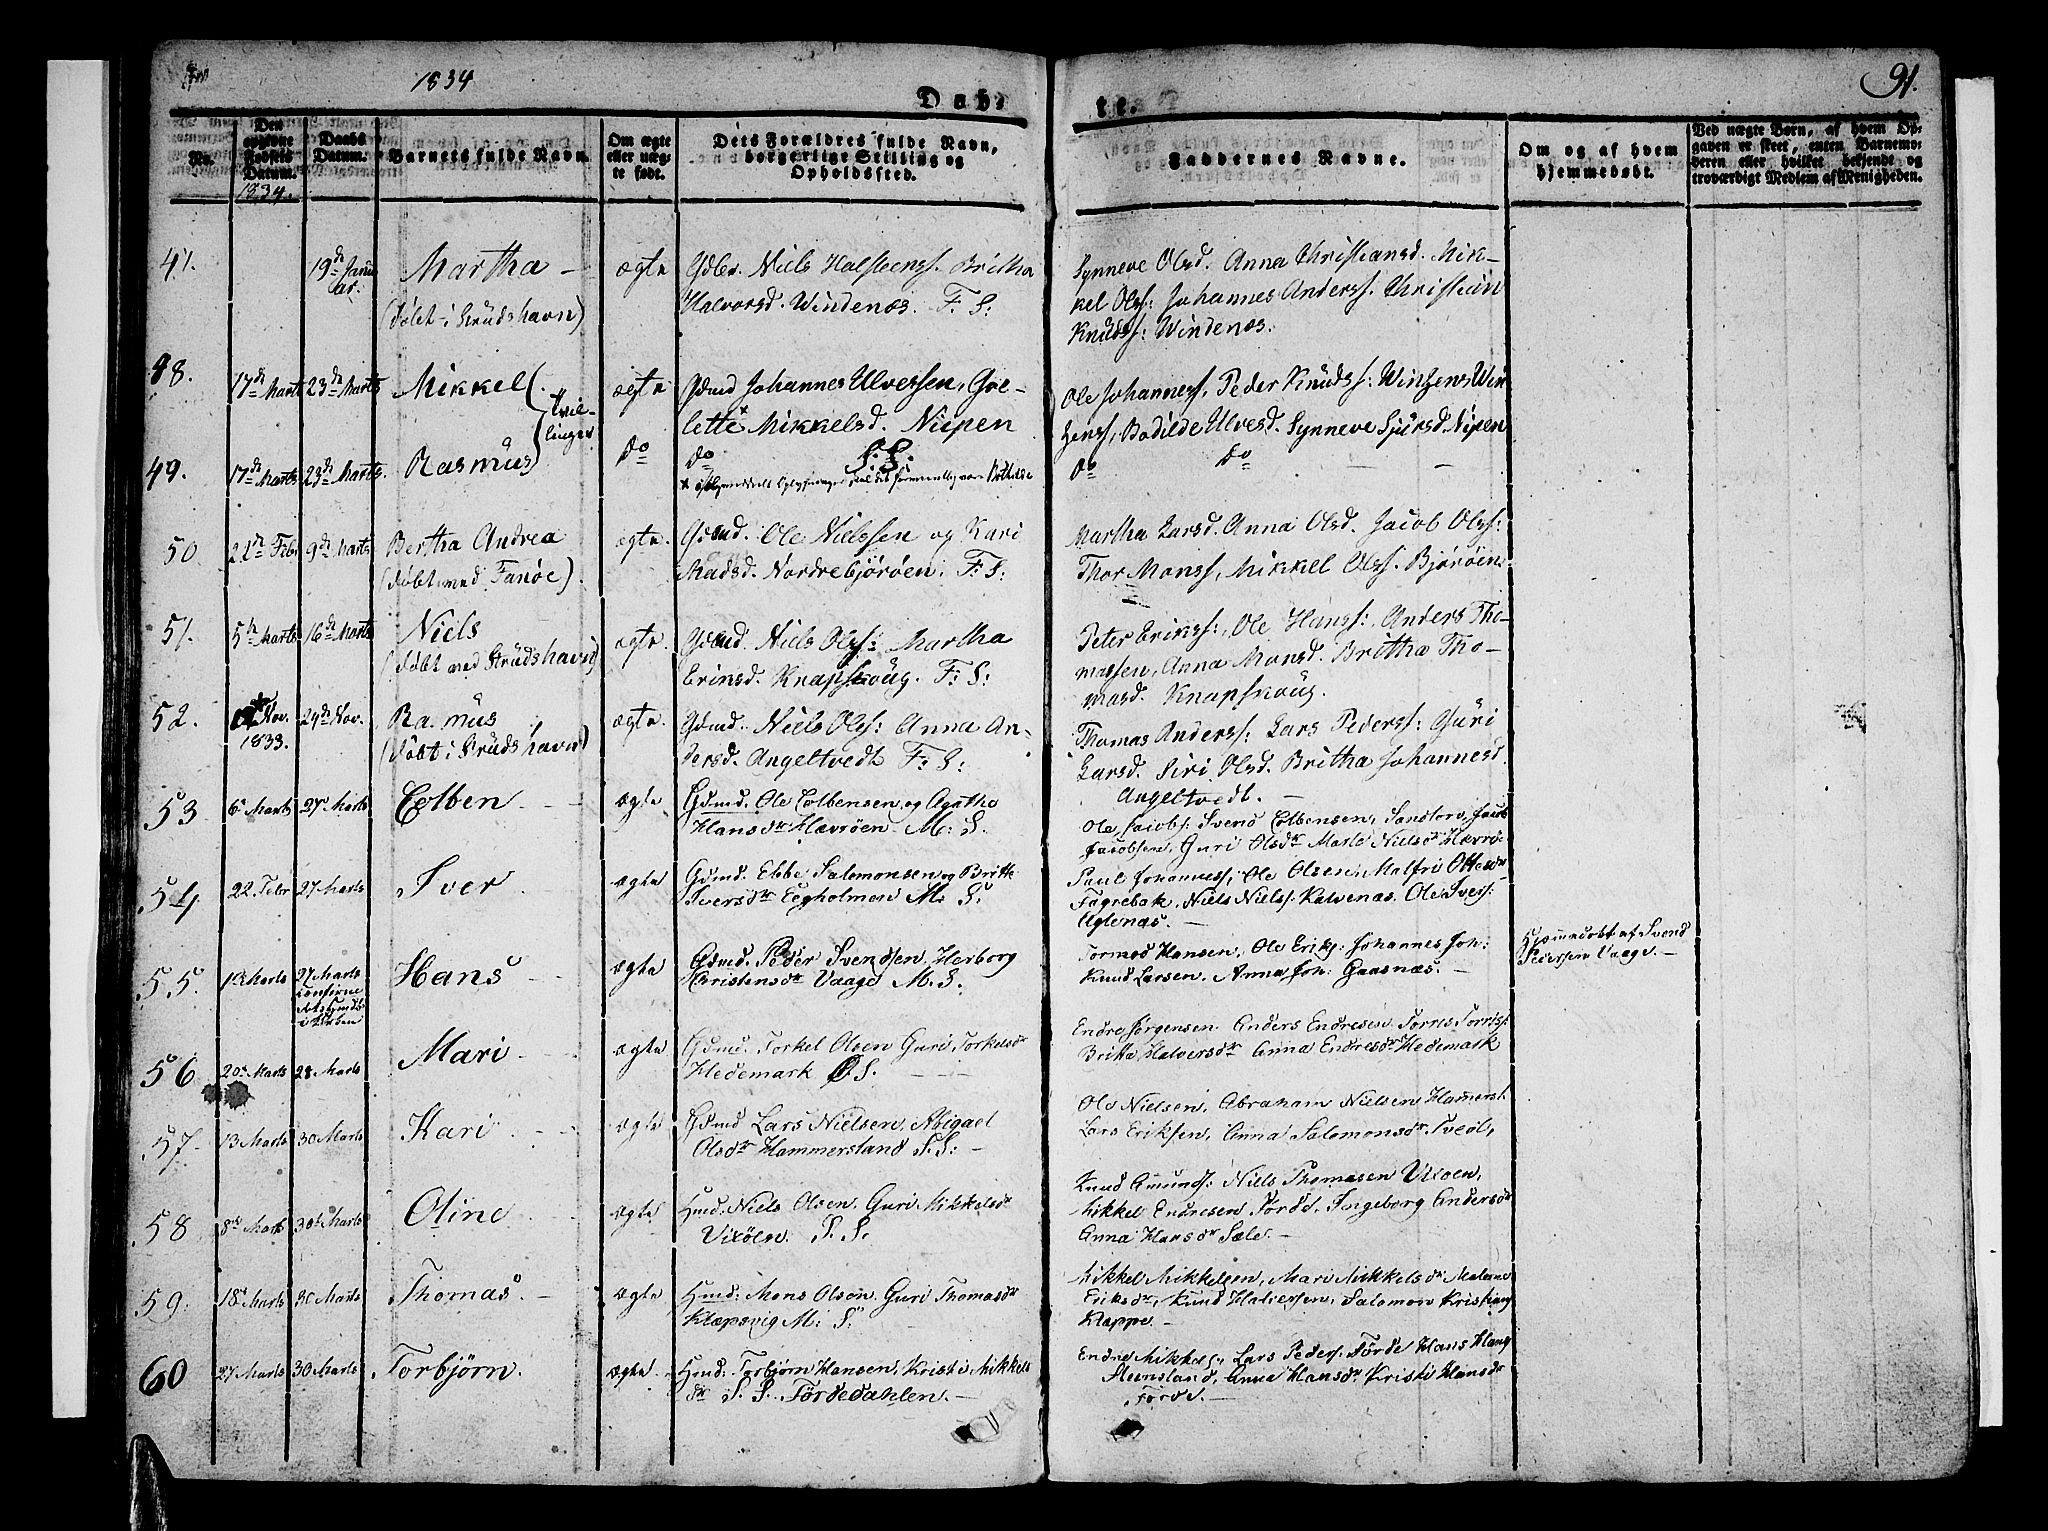 1834
91.
Døb-
te.
No.
Den
opgivne
Fødsels
Datum.
1834.
Daabs
Datum.
Barnets fulde Navn.
Om ægte
eller uæg-
te født.
Dets Forældres fulde Navn,
borgerlige Stilling og
Opholdssted.
Faddernes Navne.
Om og af hvem
hjemmedøbt.
Ved uægte Børn, af hvem Op-
gaven er skeet, enten Barnemo-
deren eller hvilket bekjendt og
troværdigt Medlem af Menigheden.
47. 19de Janu
ar.
Martha
(døbt i Strudshavn)
ægte
Gdbr. Niels Halsteenss. Britha
Halvorsd. Windenæs. F: S:
Synneve Olsd. Anna Christiansd. Mik-
kel Olss: Johannes Anderss. Christian
Knudss: Windenæs.
48. 17de Marts 23de Marts Mikkel
tvil-
linger
ægte
Gdmd Johannes Ulvessen,
lette * Mikkelsd. Niipen
S: S:
Ole Johanness, Peder Knudss: Winzens Win
zenss, Bodilde Ulvesd. Synneve Sjursd. Nipen
49. 17de Marts 23de Marts Rasmus
do
do
do do
50 9de Marts Bertha Andrea
(døbt med Fanøe).
ægte.
Gdmd. Ole Nielssen og Kari
Madsd. Nordrebjørøen. F: S:
Martha Larsd. Anna Olsd. Jacob Olss:
Thor Monss, Mikkel Olss. Bjørøen
51. 5te Marts 16de Marts Niels
(døbt med Strudshavn)
ægte.
Gdmd. Niels Olss: Martha
Erinsd. Knapskoug. F: S:
Peter Erikss:, Ole Hanss: Anders Tho-
massen, Anna Monsd. Britha Tho-
masd. Knapskoug.
52. Nov.
1833.
29de Nov.
Ra mus
(døbt i Strudshavn)
ægte.
Gdmd. Niels Olss: Anna An-
dersd. Angeltvedt F: S:
Thomas Anderss: Lars Pederss: Guri
Larsd. Siri Olsd. Britha Johannesd.
Angeltvedt.
53 6 Marts 27 Marts Colben
ægte
Gdmd. Ole Colbensen og Agatha
Hansdr Hævrøen. M: S.
Ole Jacobs: Svend Colbensen, Sandtorv, Jacob
Jacobsen, Guri Olsdr Marte Nielsdr Hævrøe
54 22 Febr 27 Marts Iver
ægte
Gdmd. Ebbe Salomonsen og Britte
Iversdr Eegholmen M: S.
Paul Johanness, Ole Olsen, Malfri Ottesdr
Fagrebak, Niels Niels: Kalvenæs. Ole Ivers:
Uglenæs.
55. Marts 27 Marts
Hans
ægte
Gdmd. Peder Svendsen, Herborg
Christensdr Vaage M. S.
Tormod Hansen, Ole Erik: Johannes Joh:
Knud Larsen. Anna Joh: Gaasnæs.
Hjemmedøbt af Svend
Pedersen Vaage.
56 20 Marts 28 Marts Mari
ægte
Gdmd. Torkel Olsen Guri Torkelsdr
Hedemark Ø. S.
Endre Jørgensen Anders Endresen Torris Torriss:
Britta Halversdr Anna Endresdr Hedemark
57. 13 Marts 30 Marts Kari
ægte
Gdmd Lars Nielsen, Abigael
Olsdr Hammersland S. S:
Ole Nielsen, Abraham Nielsen Hamersl.
Lars Eriksen, Anna Salomonsdr Tvedt,
58 8de Marts 30te Marts Oline
ægte
Hmd: Niels Olsen. Guri Mikkelsdr
Vixøen. S. S.
Knud Amunds: Niels Thomasen Vixoen,
Mikkel Endresen Førde, Ingeborg Andersdr
Anna Hansdr Sæle.
59. 18 Marts 30 Marts Thomas
ægte
Hmd: Mons Olsen Guri Thomasdr
Klæpsvig M: S:
Mikkel Mikkelsen, Mari Mikkelsdr Malene
Eriksdr, Knud Halversen, Salomon
Kleppe.
60 27 Marts 30 Marts Torbjørn.
ægte.
Hmd: Torbjørn Hansen, Kristi Mikkels
dr S. S. Førdedahlen.
Endre Mikkels, Lars Peders. Førde Hans Hans
Steensland, Anna Hansdr Kristi Hansdr
Førde.